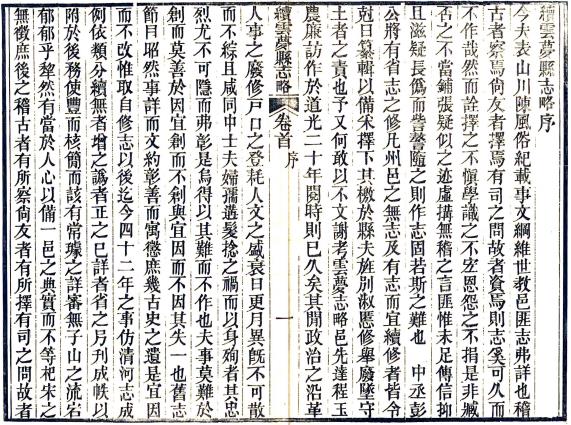 續雲夢縣志略序
今夫表山川陳風俗紀載事文綱維世教邑匪志弗詳也稽
古者察焉尚友者擇焉有司之問故者資焉則志奚可久而
不作哉然而詮擇之不愼學識之不宏恩怨之不捐是非臧
否之不當鋪張疑似之迹虛搆無稽之言匪惟未足傳信抑
且滋疑長僞而訾謷隨之則作志固若斯之難也 中丞彭
公將有省志之修凡州邑之無志及有志而宜續修者皆令
尅日纂輯以備采擇下其檄於縣夫旌別淑慝修舉廢墜守
土者之責也予又何敢以不文謝考雲夢志略邑先達程玉
農廉訪作於道光二十年閱時則已久矣其閒政治之沿革
續雲夢縣志略 卷首 序 一
人事之廢修戸口之登耗人文之盛衰日更月異旣不可散
而不綜且咸同中士夫婦孺遘髮捻之禍而以身殉者其忠
烈尤不可隱而弗彰是烏得以其難而不作也夫事莫難於
創而莫善於因宜創而不創與宜因而不因其失一也舊志
節目昭然事詳而文約彰善而寓懲庶幾古史之遺是宜因
而不改惟取自修志以後迄今四十二年之事仿清河志成
例依類分續無者增之譌者正之已詳者省之另刋成帙以
附於後務使豐而核簡而該有常璩之詳審無子山之流宕
郁郁乎犂然有當於人心以備一邑之典實而不等杞宋之
無徵庶後之稽古者有所察尚友者有所擇有司之問故者